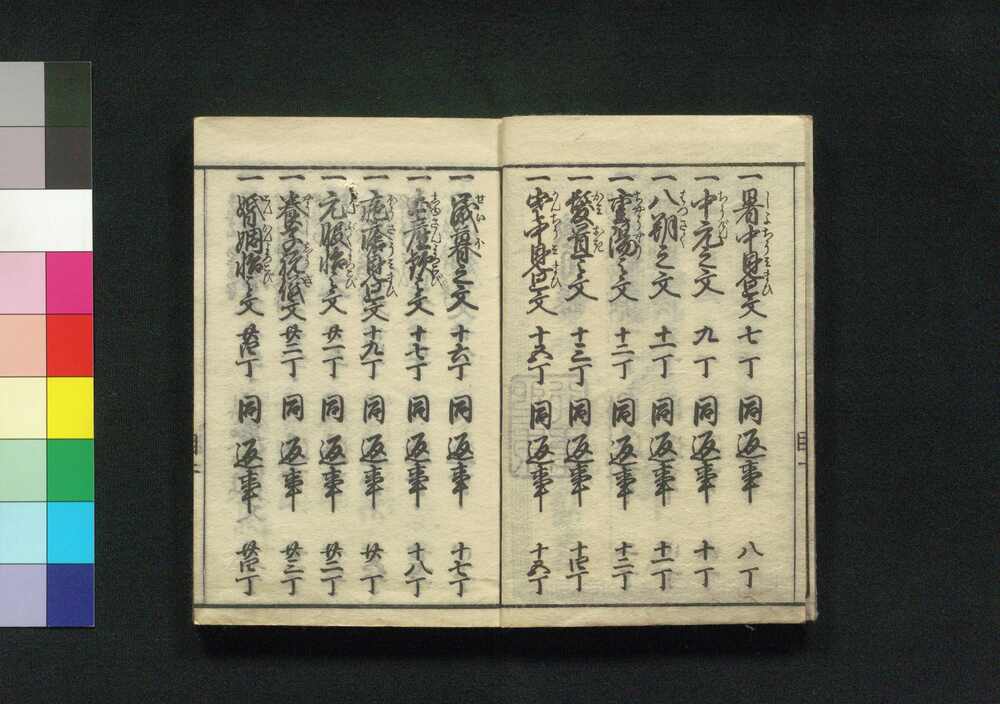 一 暑中見廻文 七丁 同返事 八丁
一 中元之文 九丁 同返事 十丁
一 八朔之文 十一丁 同返事 十一丁
一 重陽之文 十二丁 同返事 十二丁
一 髪置之文 十三丁 同返事 十四丁
一 寒中見廻文 十五丁 同返事 十五丁
一 歳暮之文 十六丁 同返事 十七丁
一 文 十七丁 同返事 十八丁
一 疱瘡見廻文 十九丁 同返事 廿丁
一 元服悦之文 廿一丁 同返事 廿二丁
一 文 廿二丁 同返事 廿三丁
一 婚姻悦之文 廿四丁 同返事 廿四丁